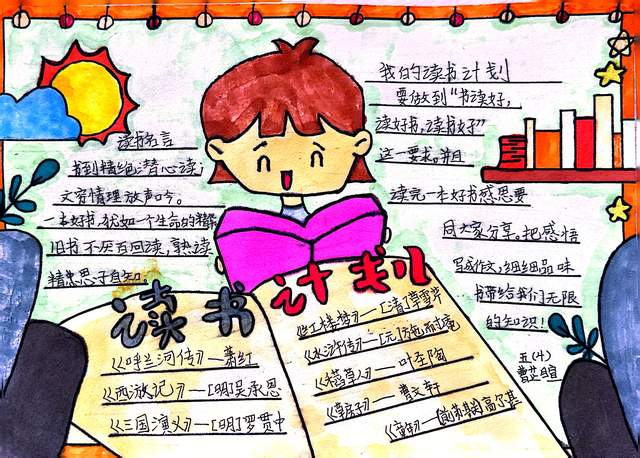 读书名言
书到精绝潜心读;
文穷情理放声吟。
一本好书,犹如一个生命的精华
旧书不厌百回读,熟读
精思子自知。
我的读书计划
要做到“书读好,
读好书,读书好”
这一要求。并且
读完一本好书感思要
同大家分享。把感悟
写成作文,细细品味
书带给我们无限
的知识!
五(4)
读书计划
《呼兰河传》—萧红
《西游记》—[明]吴承恩
《三国演义》—[明]罗贯中
《红楼梦》—[清]曹雪芹
《水浒传》—[元]施耐庵
《稻草人》—叶圣陶
《草房子》—曹文轩
《童年》—[前苏联]高尔基